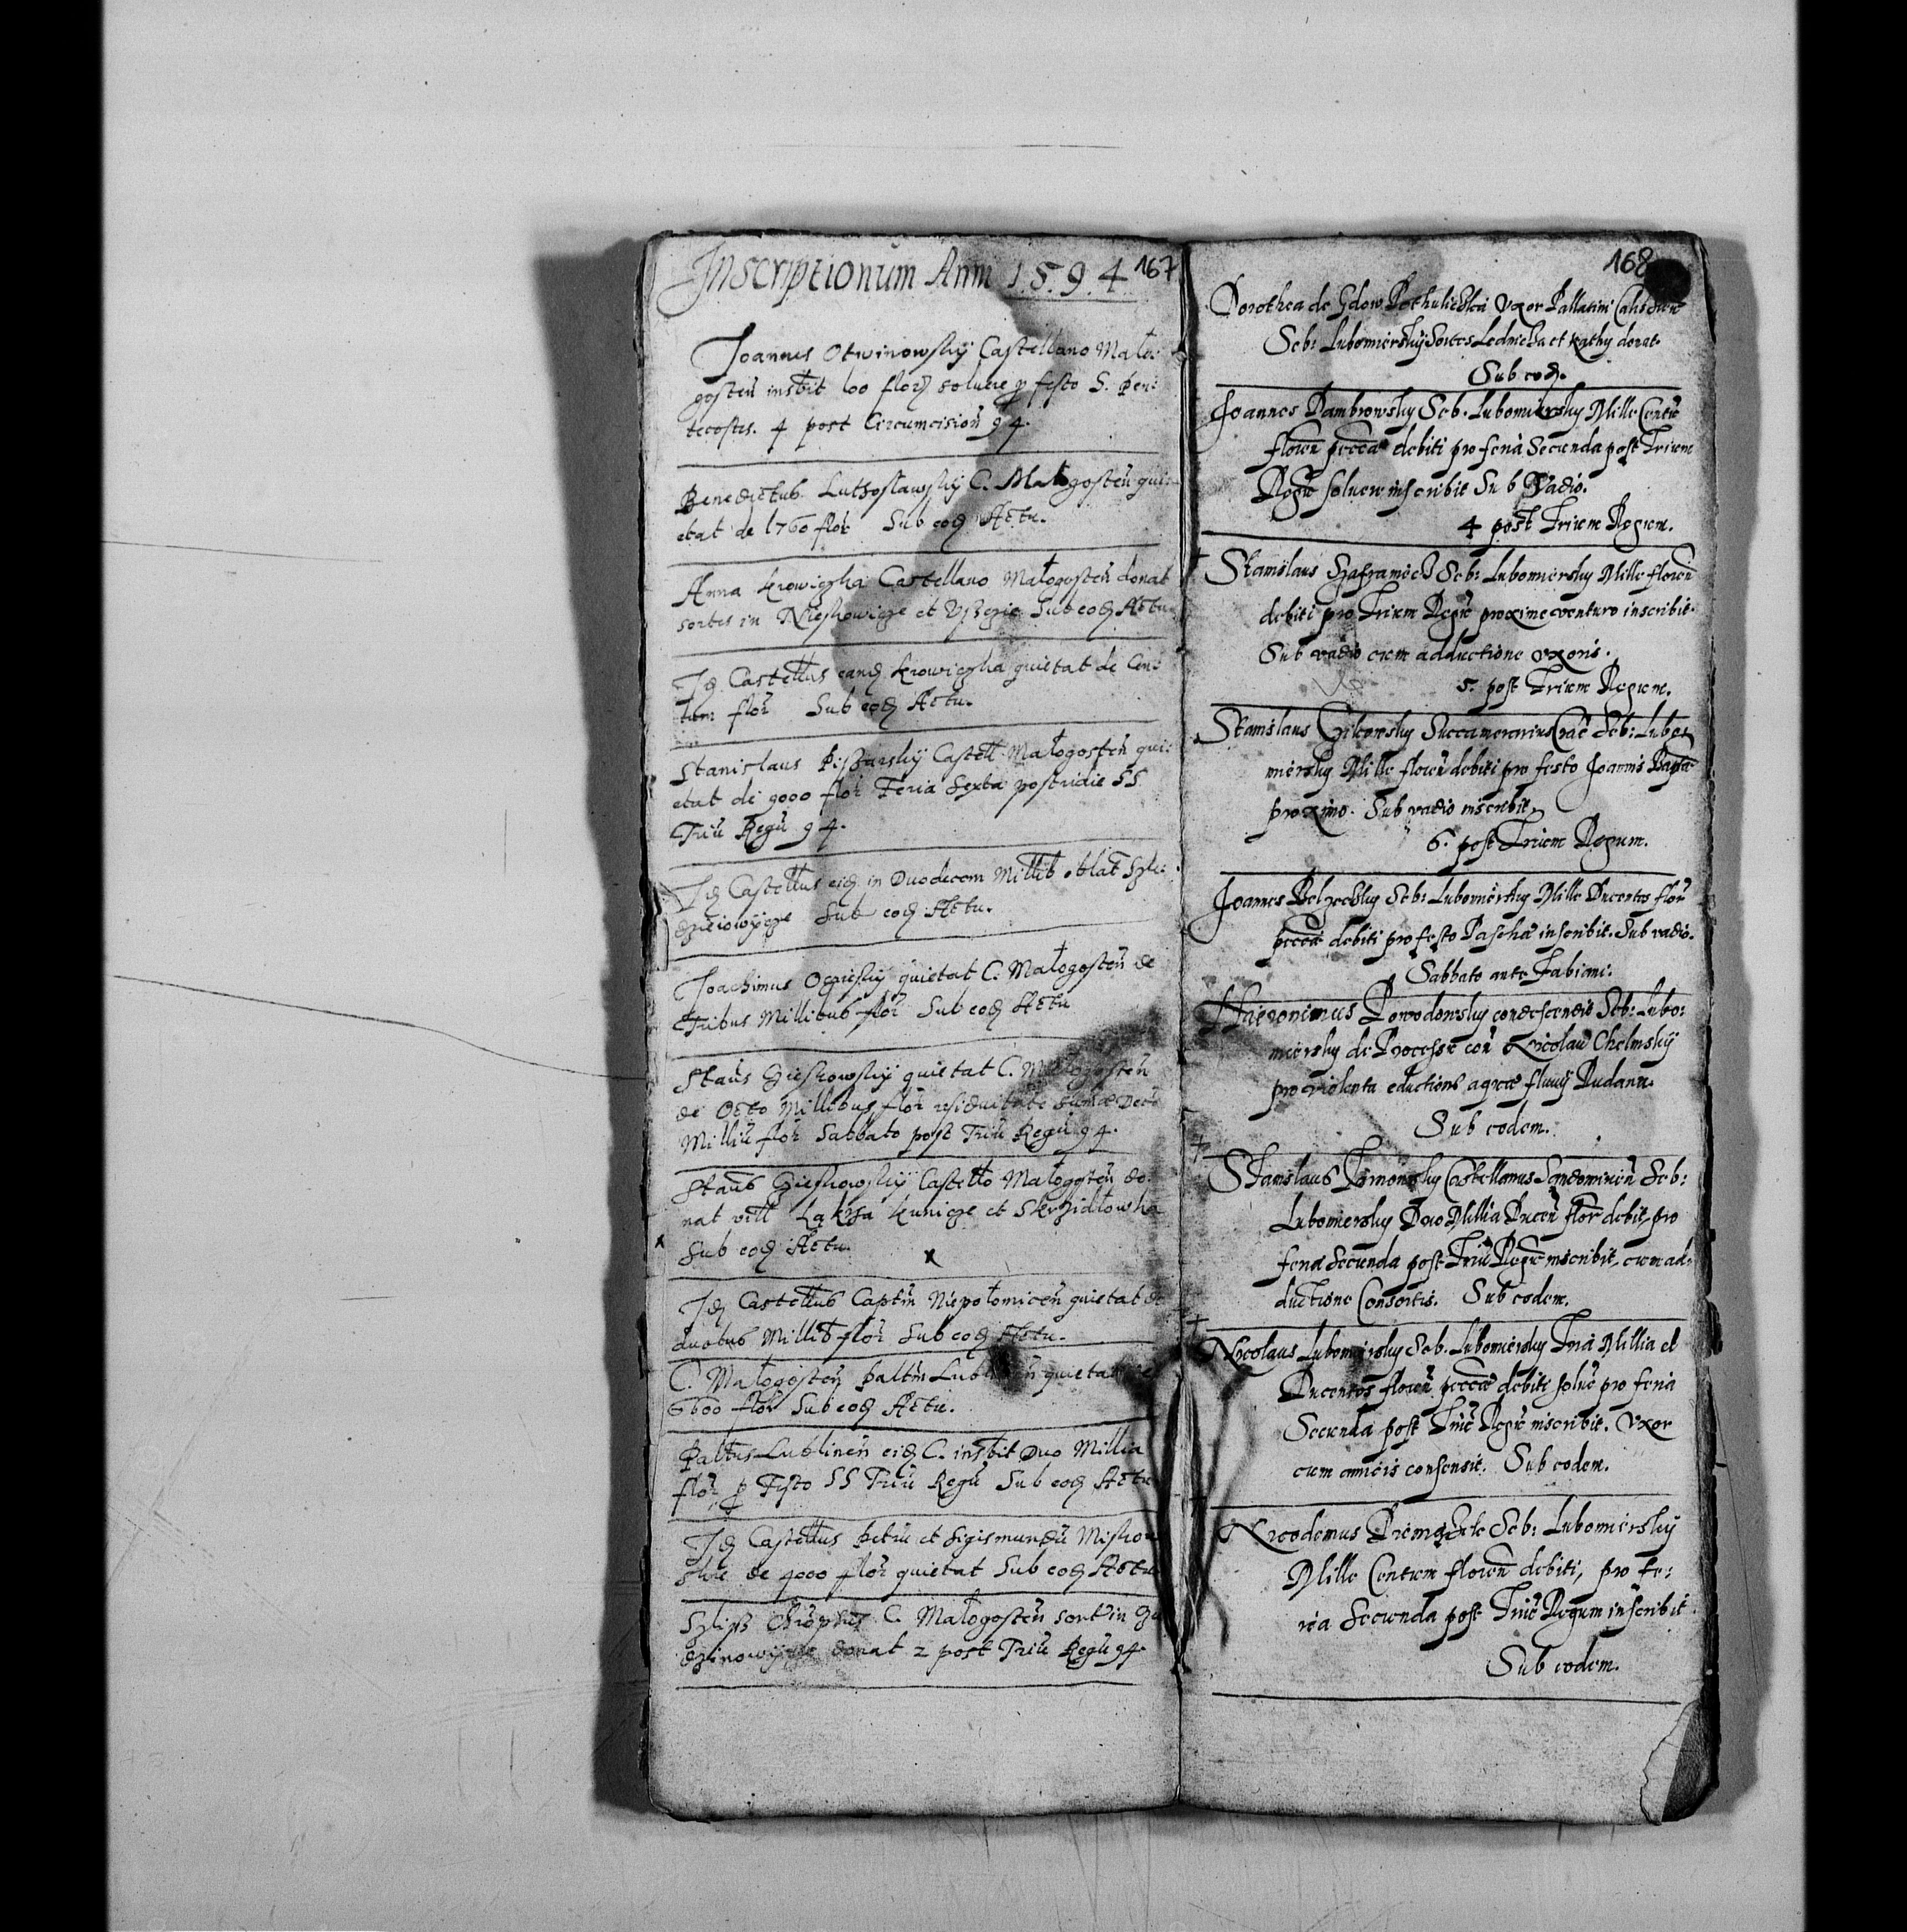 Inscriptionum Anni 1594 167
Joannes Otwinowskÿ Castellano Mało:
gosteñ insbit 100 floʒ soluere ꝓ festo S. Pen:
tecostes. 4 post Circumcisioñ 94.
Benedictus Luthosławskÿ C. Małogosteñ qui:
etat de 1760 floʒ Sub eoꝺ Actu.
Anna Krowiczka Castellano Małogosteñ donat
sortes in Nieskowicze et Sub eoꝺ Actu
Iꝺ Castellꝰ eanꝺ Krowiczka quietat de Cen:
tum floʒ Sub eoꝺ Actu.
Stanislaus Castell Małogosteñ qui:
etat de 9000 floʒ Feria Sexta postridie SS
Triũ Regũ 94.
Iꝺ Castellus eiꝺ in Duodecem Millib oblat
Sub eoꝺ Actu.
Joachimus quietat C. Małogosteñ de
Tribus Millibus floʒ Sub eoꝺ Actu
Staũs quietat C. Małogosteñ
de Octo Millibus floʒ Dece
Milliũ floʒ Sabbato post Triũ Regũ 94.
Staũs Castello Małogosteñ do:
nat vill Łąkta Kunicze et Skrzidłowka
Sub eoꝺ Actu.
Iꝺ Castellus Captñ Niepołomiceñ quietat de
duobus Millib floʒ Sub eoꝺ Actu.
C. Małogosteñ Paltñ quietat de
6600 floʒ Sub eoꝺ Actu.
Paltñs Lublineñ eiꝺ C. insbit Duo Millia
floʒ ꝓ Festo SS Triũ Regũ Sub eoꝺ Actu
Iꝺ Castellus Petrũ et Sigismundũ
de 4000 floʒ quietat Sub eoꝺ Actu
C. Małogosteñ sort in
donat 2 post Triũ Regũ 94.
168
Dorothea de Gdow Uxor Pallatini
Seb: Lubomierskÿ Sortes et donat.
Sub eoꝺ.
Joannes Dambrowsky Seb. Lubomiersky Mille Centũ
floreñ debiti pro feria Secunda post Trium
Regũ soluere inscribit Sub Vadio.
4 post Trium Regum.
Stanislaus Szafraniecz Seb: Lubomiersky Mille floreñ
debiti pro Trium Regũ proxime venturo inscribit.
Sub vadio cum adductione uxoris.
5. post Trium Regum.
Stanislaus Succamerarius Seb: Lubo:
miersky Mille floreñ debiti pro festo Joannis
proximo. Sub vadio inscribit,
6. post Trium Regum.
Joannes Belzecky Seb: Lubomiersky Mille Ducentos floʒ
debiti pro festo Paschæ inscribit. Sub vadio.
Sabbato ante Fabiani.
Hieronimus Powodowsky condescendit Seb: Lubo:
miersky de Processu coñ Nicolaũ Chelmskÿ
pro violenta aquæ fluvÿ
Sub eodem.
Stanislaus Castellanus Sandomirieñ Seb:
Lubomiersky Duo Millia Duceñ floʒ debiti, pro
feria Secunda post Triũ Regũ inscribit, cum ad:
ductione Consortis. Sub eodem.
Nicolaus Lubomiersky Seb. Lubomiersky Tria Millia et
Ducentos floreñ debiti solue pro feria
Secunda post Triũ Regũ inscribit. Uxor
cum amicis consensit. Sub eodem.
Nicodemus Seb: Lubomierskÿ
Mille Centum floreñ debiti, pro fe:
ria Secunda post Triũ Regum inscribit
Sub eodem.